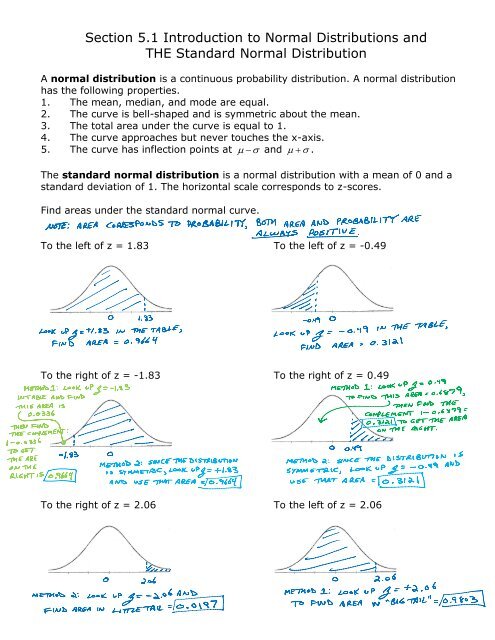 Section 5.1 Introduction to Normal Distributions and
THE Standard Normal Distribution
A normal distribution is a continuous probability distribution. A normal distribution
has the following properties.
1. The mean, median, and mode are equal.
2. The curve is bell-shaped and is symmetric about the mean.
3. The total area under the curve is equal to 1.
4. The curve approaches but never touches the x-axis.
5. The curve has inflection points at μ − σ and μ + σ.
The standard normal distribution is a normal distribution with a mean of 0 and a
standard deviation of 1. The horizontal scale corresponds to z-scores.
Find areas under the standard normal curve.
NOTE: AREA CORRESPONDS TO PROBABILITY, BOTH AREA AND PROBABILITY ARE
ALWAYS POSITIVE.
To the left of z = 1.83
0 1.83
LOOK UP z=+1.83 IN THE TABLE,
FIND AREA = 0.9664
To the left of z = -0.49
-0.49 0
LOOK UP z = -0.49 IN THE TABLE,
FIND AREA = 0.3121
To the right of z = -1.83
METHOD 1: LOOK UP z = -1.83
IN TABLE AND FIND
THIS AREA IS
0.0336
THEN FIND
THE COMPLEMENT:
1-0.0336
TO GET
THE ARE
ON THE
RIGHT IS 0.9664
-1.83 0
METHOD 2: SINCE THE DISTRIBUTION
IS SYMMETRIC, LOOK UP z=+1.83
AND USE THAT AREA = 0.9664
To the right of z = 0.49
METHOD 1: LOOK UP z = 0.49
TO FIND THIS AREA = 0.6879,
THEN FIND THE
COMPLEMENT 1-0.6879=
0.3121 TO GET THE AREA
ON THE RIGHT.
0 0.49
METHOD 2: SINCE THE DISTRIBUTION IS
SYMMETRIC, LOOK UP z = -0.49 AND
USE THAT AREA = 0.3121
To the right of z = 2.06
0 2.06
METHOD 2: LOOK UP z = -2.06 AND
FIND AREA IN LITTLE TAIL = 0.0197
To the left of z = 2.06
0 2.06
METHOD 1: LOOK UP z = +2.06
TO FIND AREA IN "BIG TAIL" = 0.9803